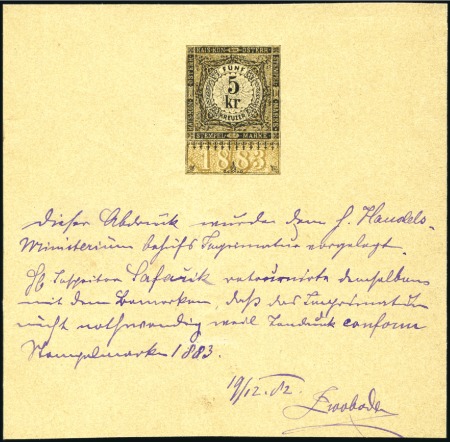 KAIS. KÖN. ÖSTERR.
FÜNF
5
kr
KREUZER
STEMPEL MARKE
1883
Dieser Abdruck wurde dem h. Handels-
Ministerium behufs Imprimatur vorgelegt.
H Inspector Safarik retournirte denselben
mit dem Bemerken, daß das Imprimatur
nicht nothwendig weil Tondruck conform
Stempelmarken 1883.
19/12. 82.
Swoboda